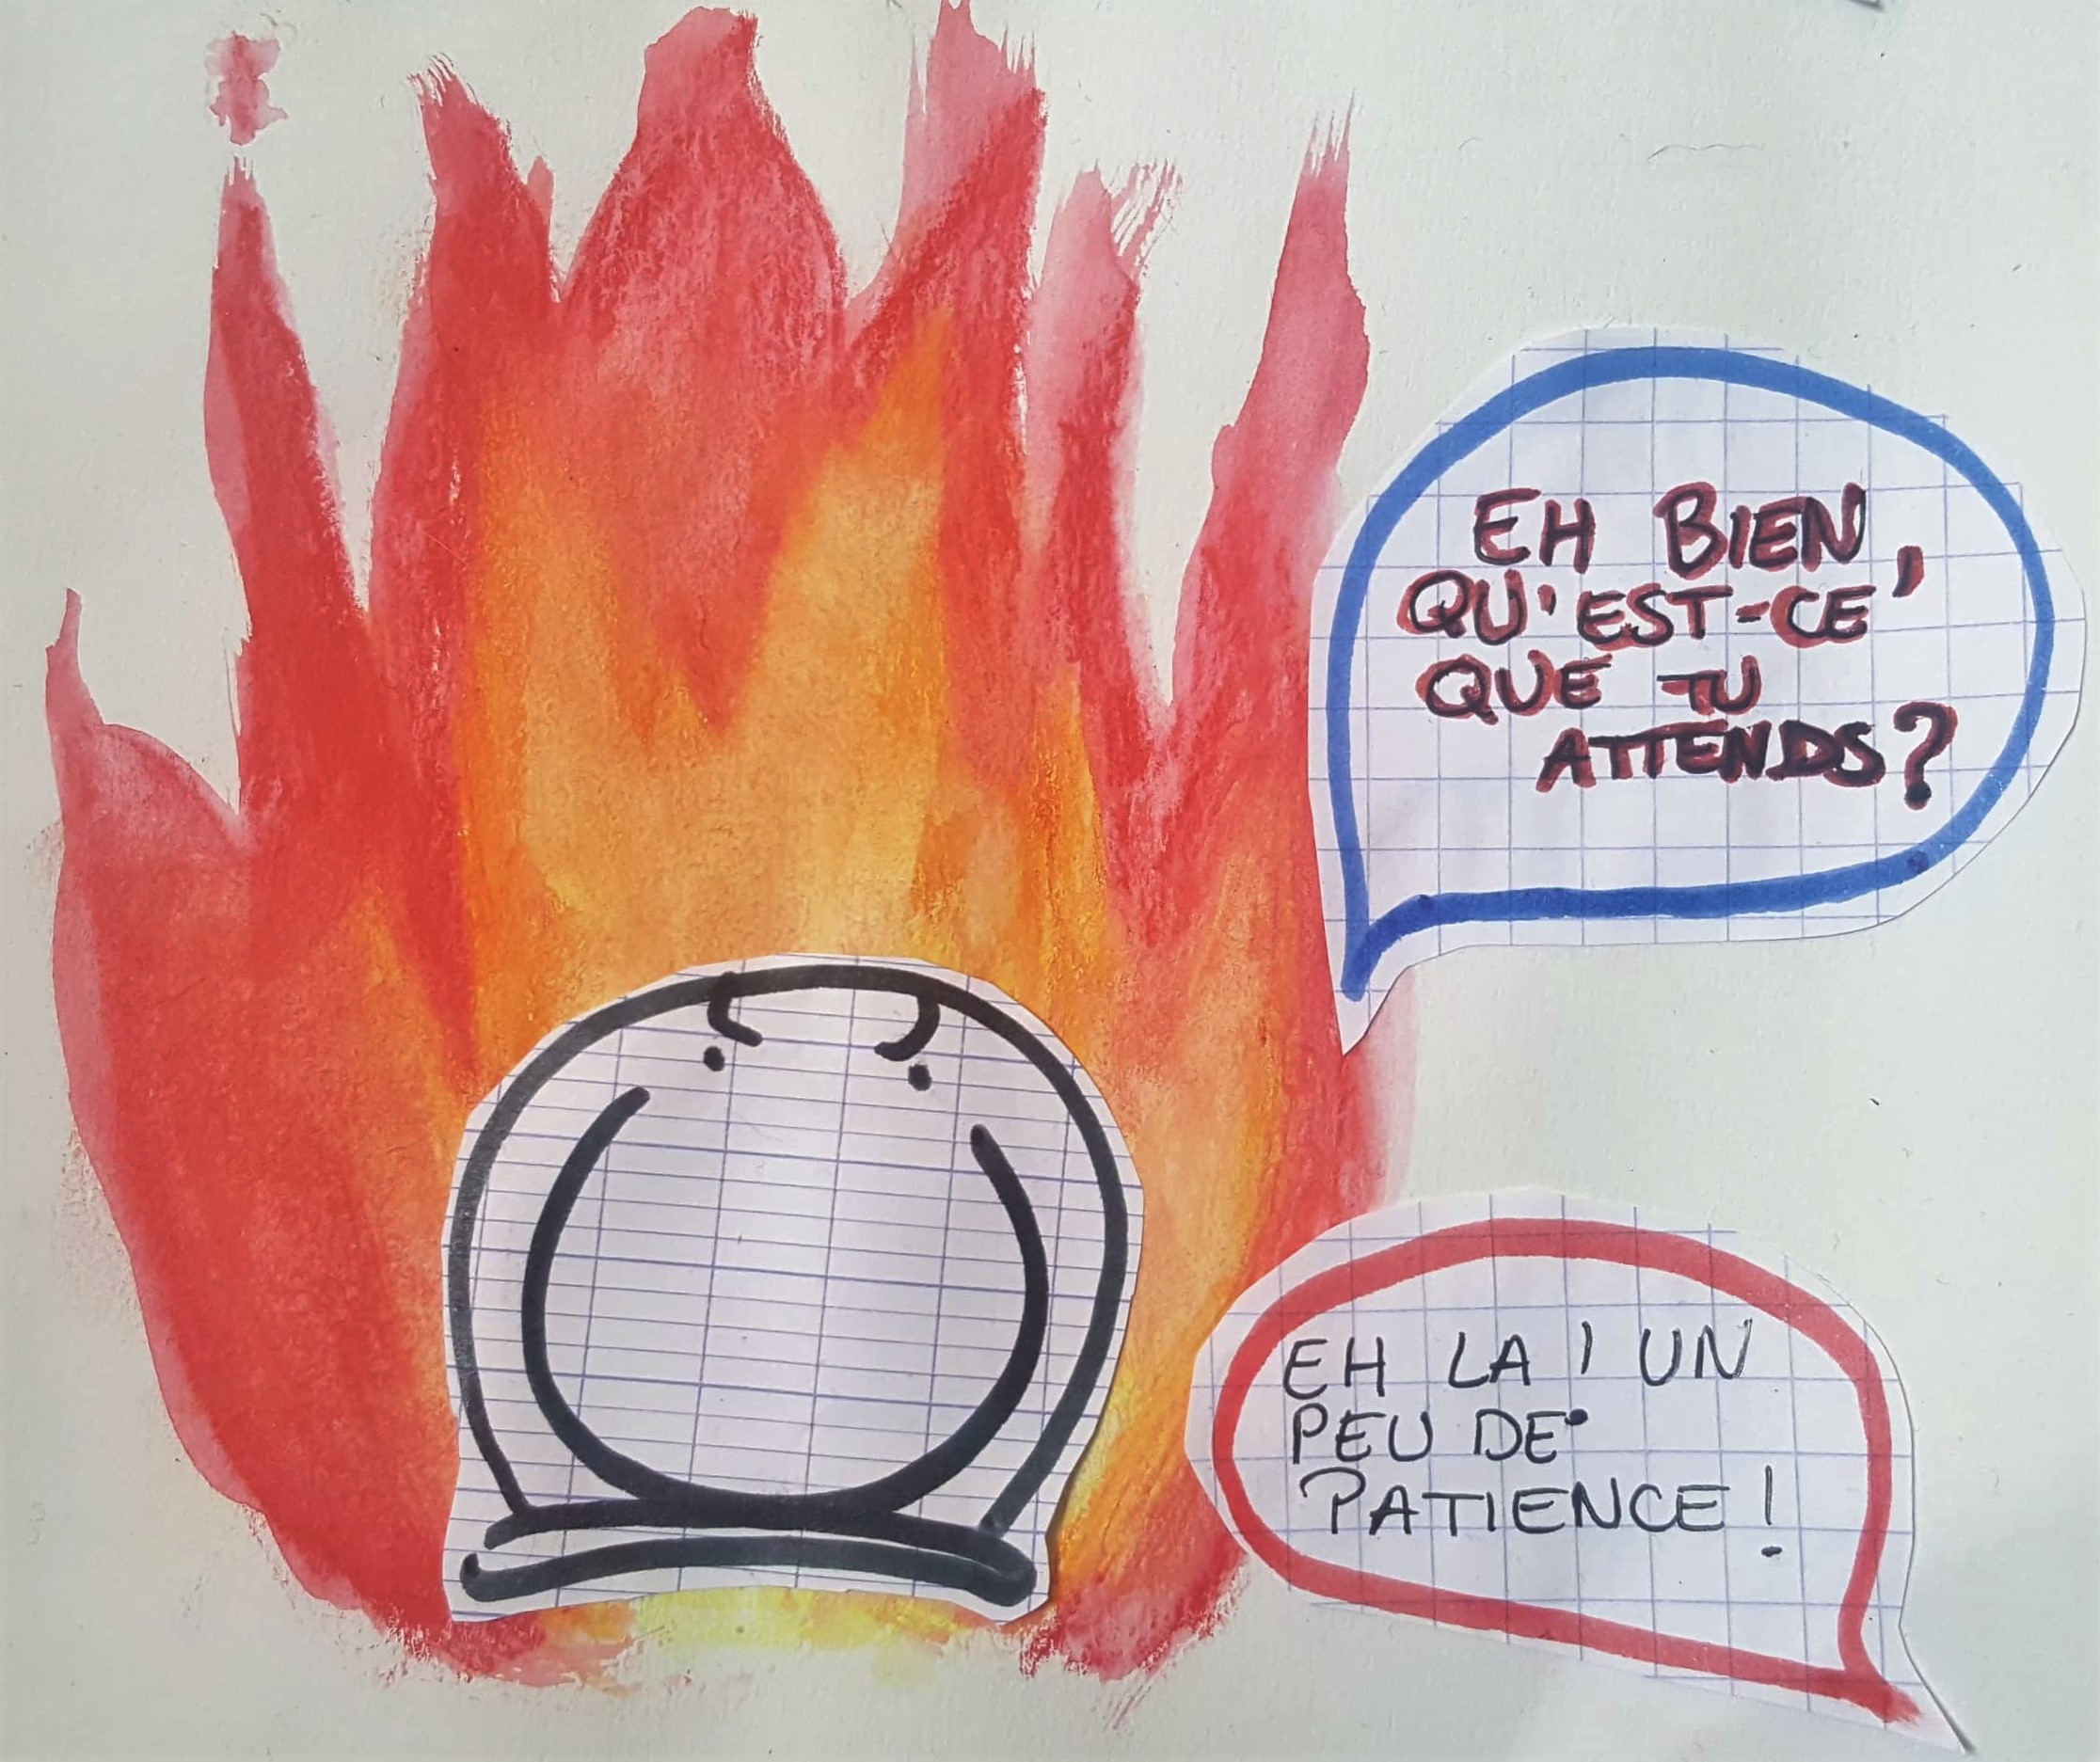 EH BIEN,
QU'EST-CE
QUE TU
ATTENDS?
EH LA ! UN
PEU DE
PATIENCE !